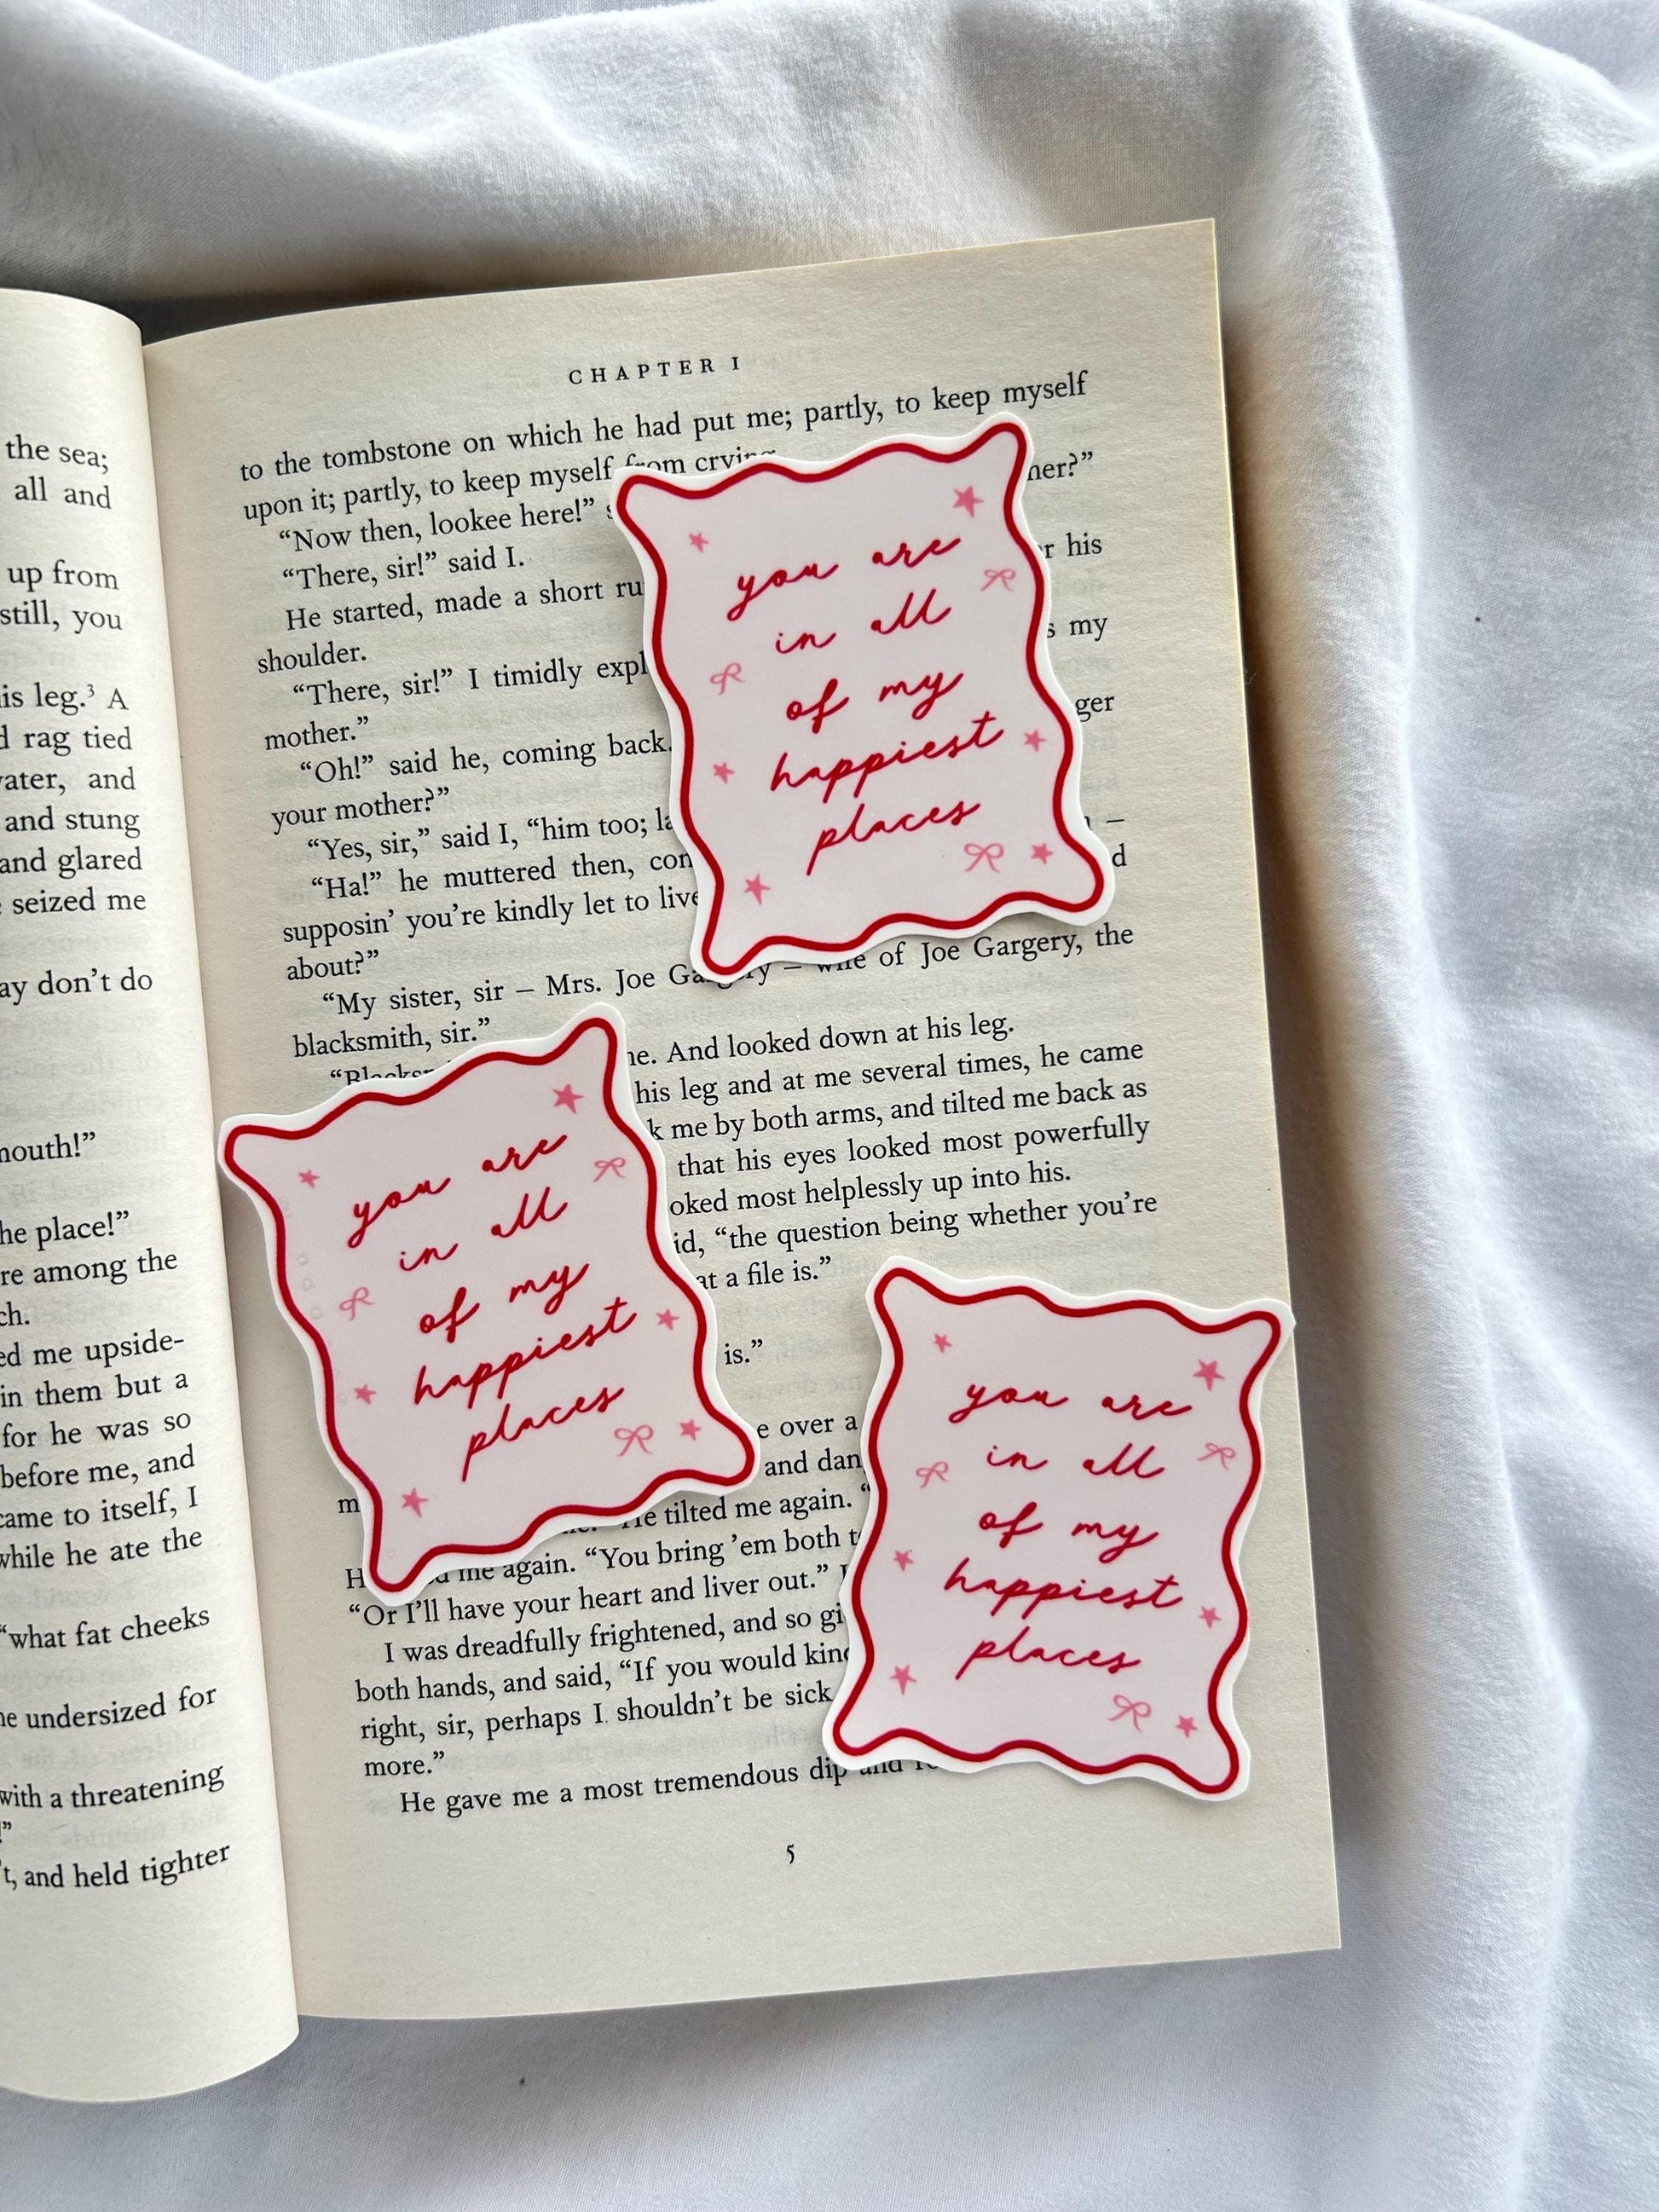 the sea;
all and
up from
still, you
is leg.³ A
rag tied
and
and stung
and glared
seized me
don't do
the place!"
among the
me upside-
in them but a
for he was so
before me, and
to itself, I
while he ate the
"what fat cheeks
undersized for
with a threatening
and held tighter
CHAPTER I
to the tombstone on which he had put me; partly, to keep myself
upon it; partly, to keep myself from crying.
"Now then, lookee here!"
"There, sir!" said I.
He started, made a short
his
shoulder.
"There, sir!" I timidly
my
mother."
"Oh!" said he, coming back.
your mother?"
"Yes, sir," said I, "him too;
"Ha!" he muttered then,
supposin' you're kindly let to live
about?"
"My sister, sir – Mrs. Joe Gargery – wife of Joe Gargery, the
blacksmith, sir."
And looked down at his leg.
his leg and at me several times, he came
me by both arms, and tilted me back as
that his eyes looked most powerfully
most helplessly up into his.
"the question being whether you're
a file is."
is."
over a
and
He tilted me again.
me again. "You bring 'em both
"Or I'll have your heart and liver out."
I was dreadfully frightened, and so
both hands, and said, "If you would
right, sir, perhaps I shouldn't be sick
more."
He gave me a most tremendous dip and
5
you are
in all
of my
happiest
places
you are
in all
of my
happiest
places
you are
in all
of my
happiest
places